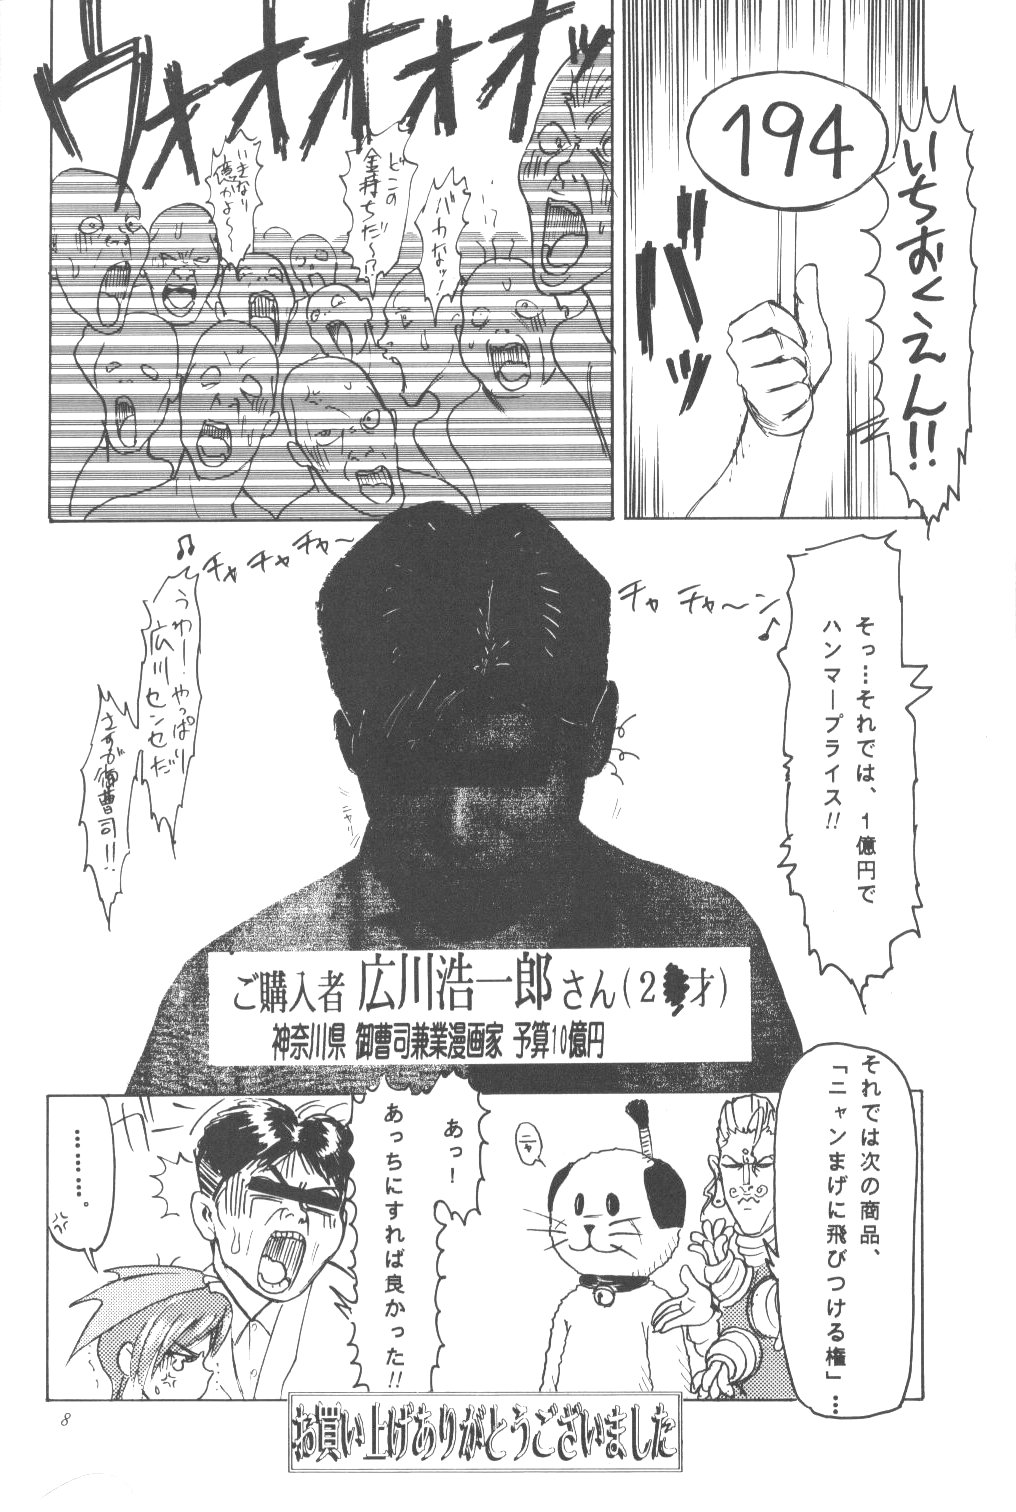 194
いちおくえん!!
バッ
ウォオオオオッ
バカなッ!
どこの
金持ちだ~!?
いきなり
億かよ~
そっ…それでは、1億円で
ハンマープライス!!
チャ チャ~ン♪
♪チャ チャ チャ~
うわー!やっぱり
広川センセだ
さすが御曹司!!
ニャリ
ご購入者 広川浩一郎さん(2 才)
神奈川県 御曹司兼業漫画家 予算10億円
それでは次の商品、
「ニャンまげに飛びつける権」…
ニャ
あっ!
あっちにすれば良かった!!
………。
お買い上げありがとうございました
8